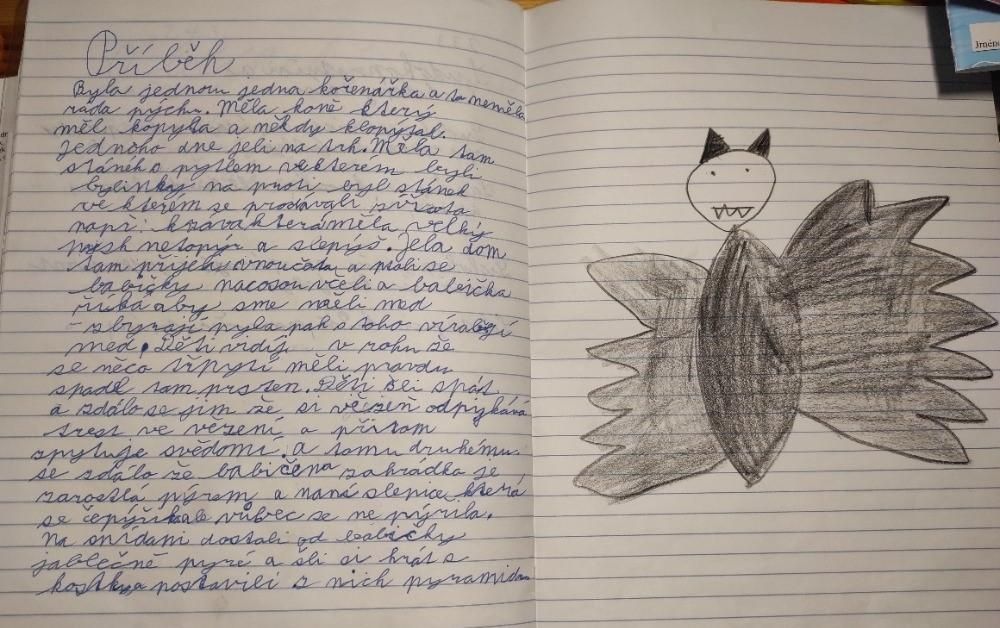 Příběh
Byla jednou jedna kořenářka a ta neměla
ráda pýchu. Měla koně který
měl kopyta a někdy klopýtal.
Jednoho dne jeli na trh. Měla tam
stánek s pytlem ve kterém byli
bylinky na proti byl stánek
ve kterém se prodávali zvířata
např: kráva která měla velký
pysk netopýr a slepýš. Jela dom
tam přijeli vnoučata a ptali se
babičky nacosou včeli a babička
říká aby sme měli med
sbyrají pyla pak s toho virabějí
med. Děti vidí v rohu že
se něco třpytí měli pravdu
spadl tam prsten. Děti šli spát
a zdálo se jim že si vězeň odpykává
trest ve vězení a přitom
zpytuje svědomí, a tomu druhému
se zdálo že babičena zahrádka je
zarostlá pýrem a naná slepice která
se čepýřikale vůbec se ne pýřila.
Na snídani dostali od babičky
jablečné pyré a šli si hrát s
kostkya postavili z nich pyramidu
Jméno